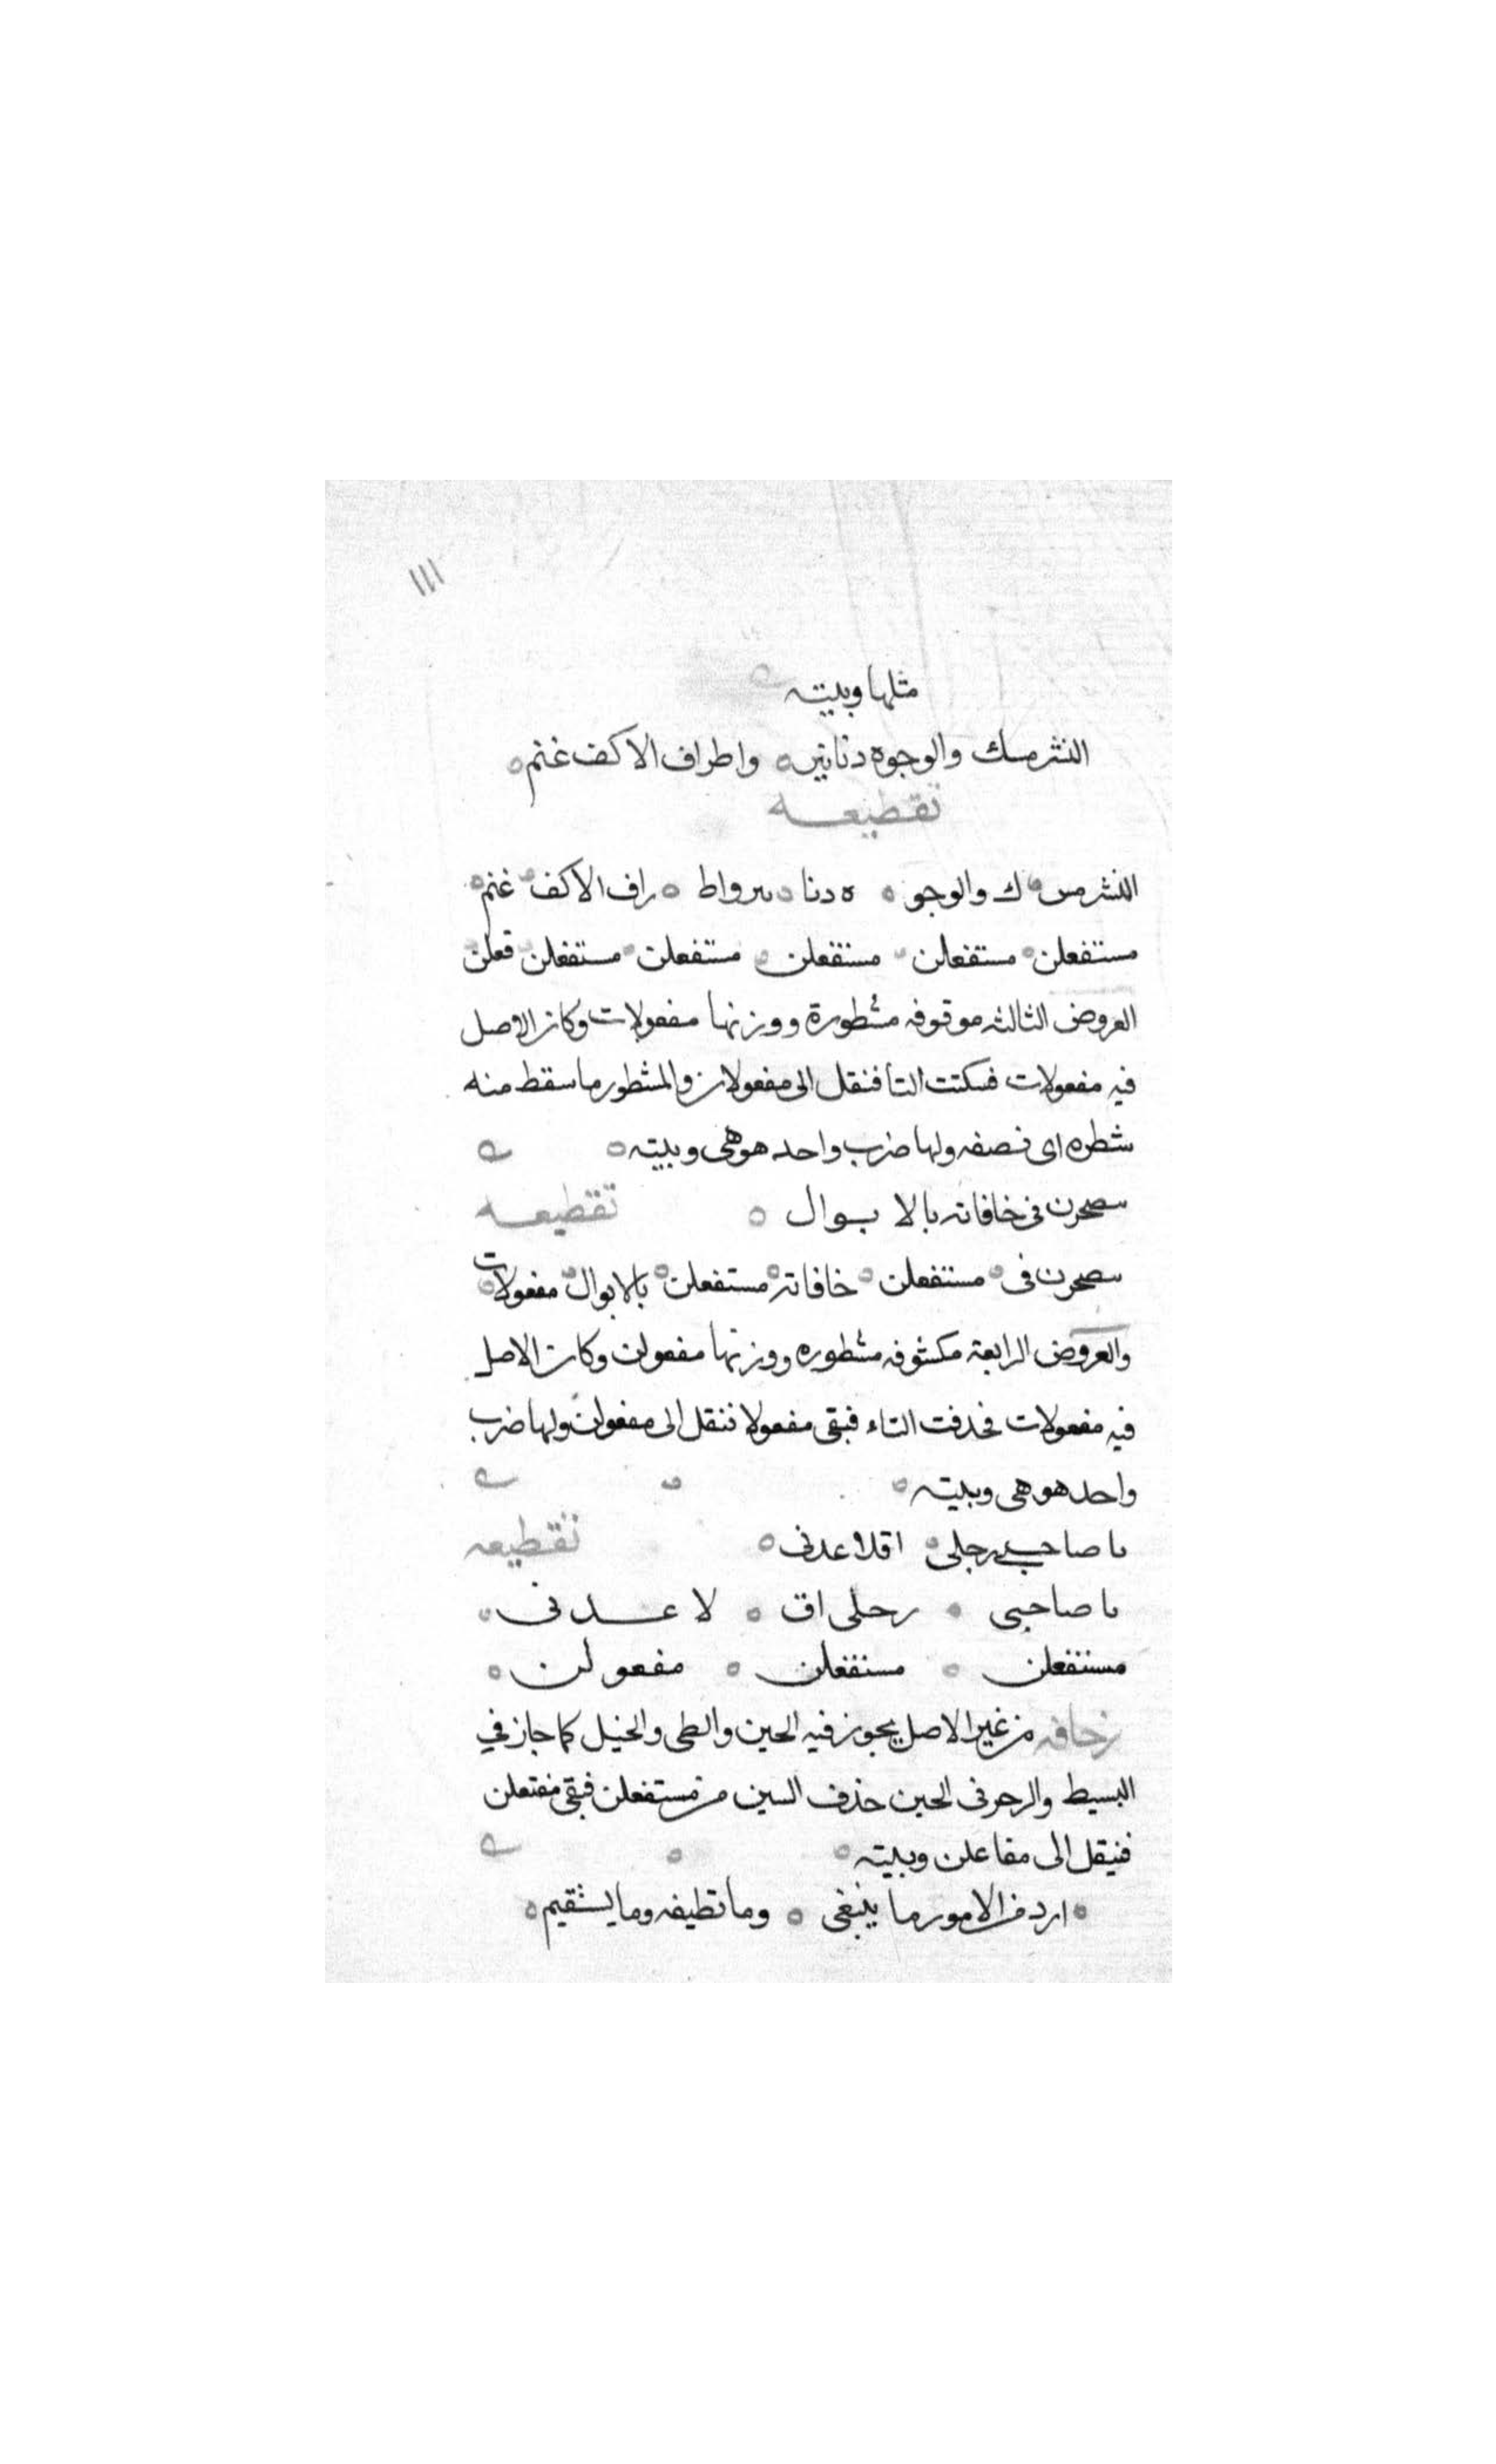 ١١١
مثلها وبيته
النشر مسك والوجوه دنانير واطراف الاكف غنم
تقطيعه
النشر مس ك والوجو ه دنا سر واط راف الاكف غنم
مستفعلن مستفعلن مستفعلن مستفعلن مستفعلن فعلن
العروض الثالثه موقوفه مشطورة ووزنها مفعولات وكان الاصل
فيه مفعولات فسكنت التا فنقل الى مفعولان والمشطور ما سقط منه
شطره اى نصفه ولها ضرب واحد هو هى وبيته
سصحرن فى خافاته بالا بوال تقطيعه
سصحرن فى مستفعلن خافاته مستفعلن بالابوال مفعولات
والعروض الرابعة مكشوفه مشطوره ووزنها مفعولن وكان الاصل
فيه مفعولات فحدفت التاء فبقى مفعولا فنقل الى مفعولن ولها ضرب
واحد هو هى وبيته
ىا صاحبى رجلى اقلا عدنى تقطيعه
ىا صاحبى رحلى اق لا عدنى
مستفعلن مستفعلن مفعولن
زحافه من غير الاصل يجوز فيه الحين والطى والخيل كما جاز في
البسيط والرحو فى الحين حذف السين من مستفعلن فبقى مفتعلن
فنيقل الى مفاعلن وبيته
ارد من الامور ما ينبغى وما تطيفه وما يشقيم